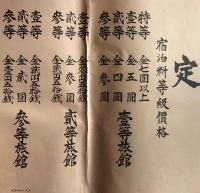 定
宿泊料等級價格
特等 金七圓以上
壹等 金五圓
貳等 金四圓
參等 金參圓
壹等旅館
壹等 金參圓五拾錢
貳等 金參圓
參等 金貳圓五拾錢
貳等旅館
壹等 金貳圓五拾錢
貳等 金貳圓
參等 金壹圓五拾錢
參等旅館